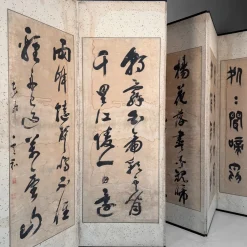 楊花落盡子規啼
朝辭白帝彩雲間
千里江陵一日還
兩岸猿聲啼不住
輕舟已過萬重山